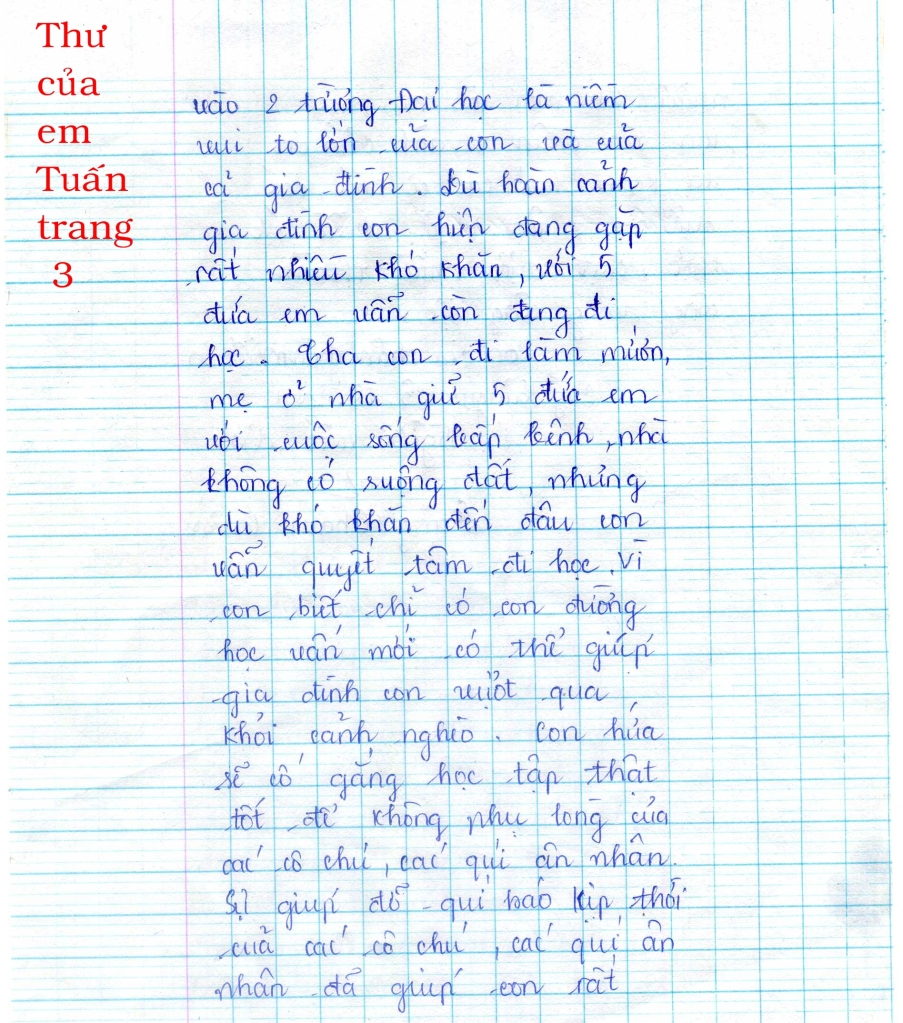 Thư
của
em
Tuấn
trang
3
vào 2 trường Đại học là niềm
vui to lớn của con và của
cả gia đình. Dù hoàn cảnh
gia đình con hiện đang gặp
rất nhiều khó khăn, với 5
đứa em vẫn còn đang đi
học. Cha con đi làm mướn,
mẹ ở nhà giữ 5 đứa em
với cuộc sống bấp bênh, nhà
không có ruộng đất, nhưng
dù khó khăn đến đâu con
vẫn quyết tâm đi học. Vì
con biết chỉ có con đường
học vấn mới có thể giúp
gia đình con vượt qua
khỏi cảnh nghèo. Con hứa
sẽ cố gắng học tập thật
tốt để không phụ lòng của
các cô chú, các quí ân nhân.
Sự giúp đỡ quí báo kịp thời
của các cô chú, các quí ân
nhân đã giúp con rất